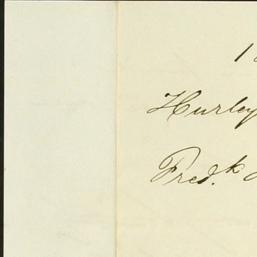 1
Hurley
Fred.k